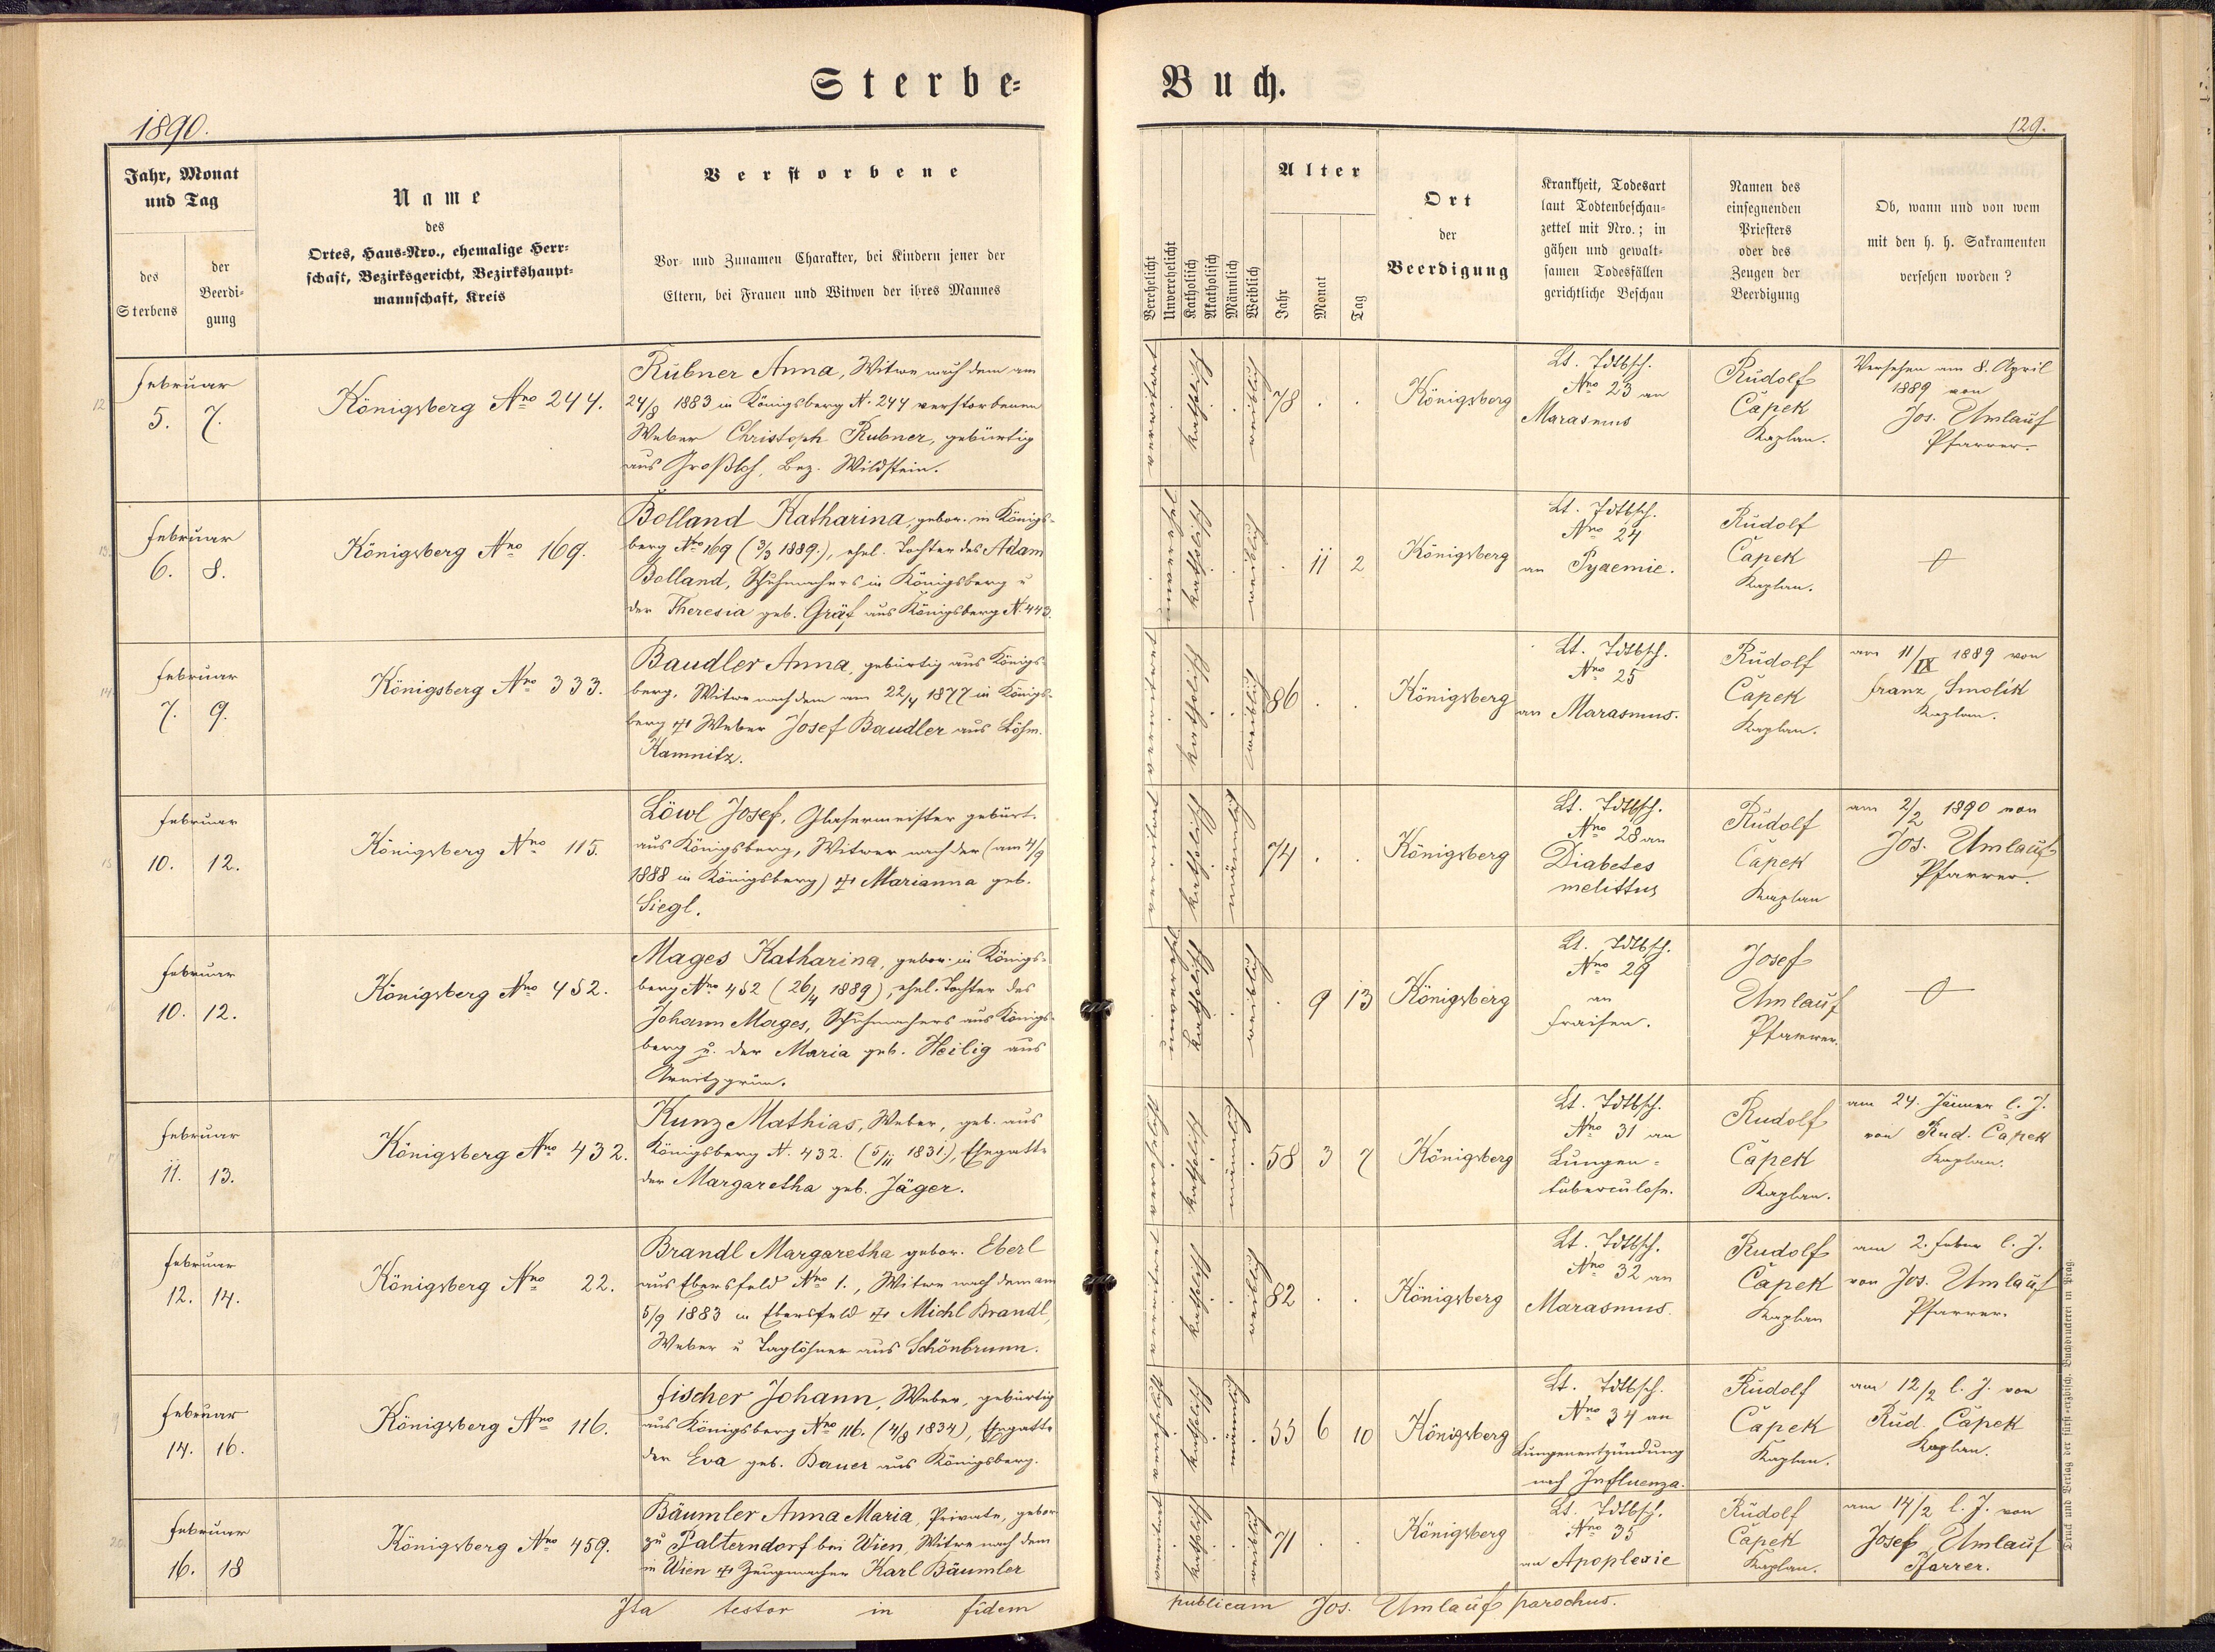 Sterbe-
Buch.
1890.
129.
Jahr, Monat
und Tag
des
Sterbens
der
Beerdi-
gung
Name
des
Ortes, Haus-Nro., ehemalige Herr-
schaft, Bezirksgericht, Bezirkshaupt-
mannschaft, Kreis
Verstorbene
Vor- und Zunamen Charakter, bei Kindern jener der
Eltern, bei Frauen und Witwen der ihres Mannes
Verehelicht
Unverehelicht
Katholisch
Akatholisch
Männlich
Weiblich
Alter
Jahr
Monat
Tag
Ort
der
Beerdigung
Krankheit, Todesart
laut Todtenbeschau-
zettel mit Nro.; in
gähen und gewalt-
samen Todesfällen
gerichtliche Beschau
Namen des
einsegnenden
Priesters
oder des
Zeugen der
Beerdigung
Ob, wann und von wem
mit den h. h. Sakramenten
versehen worden?
12
Februar
5. 7.
Königsberg Nro 244.
Rubner Anna, Witwe nach dem am
24/8 1883 in Königsberg N. 244 verstorbenen
Weber Christoph Rubner, gebürtig
aus Großloh, Bez. Wildstein.
verwitwet
katholisch
weiblich
78 . .
Königsberg
Lt. Tdtbsch.
Nro 23 an
Marasmus
Rudolf
Čapek
Kaplan.
Versehen am 8. April
1889 von
Jos. Umlauf
Pfarrer.
13.
Februar
6. 8.
Königsberg Nro 169.
Bolland Katharina, gebor. in Königs-
berg Nro 169 (3/3 1889.), ehel. Tochter des Adam
Bolland, Schuhmachers in Königsberg u
der Theresia geb. Gräf aus Königsberg N. 443.
katholisch
weiblich
. 11 2
Königsberg
Lt. Tdtbsch.
Nro 24
an Pyaemie.
Rudolf
Čapek
Kaplan.
14.
Februar
7. 9.
Königsberg Nro 333.
Baudler Anna, gebürtig aus Königs-
berg, Witwe nach dem am 22/4 1877 in Königs-
berg † Weber Josef Baudler aus Böhm.
Kamnitz.
verwitwet
katholisch
weiblich
86 . .
Königsberg
Lt. Tdtbsch.
Nro 25
an Marasmus.
Rudolf
Čapek
Kaplan.
am 11/IX 1889 von
Franz Smolik
Kaplan.
15
Februar
10. 12.
Königsberg Nro 115.
Löwl Josef, Glasermeister gebürt.
aus Königsberg, Witwer nach der (am 4/9
1888 in Königsberg) † Marianna geb.
Siegl.
katholisch
männlich
74 . .
Königsberg
Lt. Tdtbsch.
Nro 28 an
Diabetes
melittus
Rudolf
Čapek
Kaplan
am 2/2 1890 von
Jos. Umlauf
Pfarrer.
16
Februar
10. 12.
Königsberg Nro 452.
Mages Katharina, gebor. in Königs-
berg Nro 452 (26/4 1889), ehel. Tochter des
Johann Mages, Schuhmachers aus Königs-
berg u. der Maria geb. Heilig aus
katholisch
weiblich
. 9 13
Königsberg
Lt. Tdtbsch.
Nro 29
an
Fraisen.
Josef
Umlauf
Pfarrer.
17
Februar
11. 13.
Königsberg Nro 432.
Kunz Mathias, Weber, geb. aus
Königsberg N. 432. (5/11 1831), Ehegatte
der Margaretha geb. Jäger.
katholisch
männlich
58 3 7
Königsberg
Lt. Tdtbsch.
Nro 31 an
Lungen-
tuberculose.
Rudolf
Čapek
Kaplan.
am 24. Jänner l. J.
von Rud. Čapek
Kaplan.
18
Februar
12. 14.
Königsberg Nro 22.
Brandl Margaretha gebor. Eberl
aus Ebersfeld Nro 1., Witwe nach dem am
5/9 1883 in Ebersfeld † Michl Brandl,
Weber u Taglöhner aus Schönbrunn.
verwitwet
katholisch
weiblich
82 . .
Königsberg
Lt. Tdtbsch.
Nro 32 an
Marasmus.
Rudolf
Čapek
Kaplan
am 2. Feber l. J.
von Jos. Umlauf
Pfarrer.
19
Februar
14. 16.
Königsberg Nro 116.
Fischer Johann, Weber, gebürtig
aus Königsberg Nro 116. (4/8 1834), Ehegatte
der Eva geb. Bauer aus Königsberg.
katholisch
männlich
55 6 10
Königsberg
Lt. Tdtbsch.
Nro 34 an
Lungenentzündung
nach Influenza.
Rudolf
Čapek
Kaplan.
am 12/2 l. J. von
Rud. Čapek
Kaplan.
20.
Februar
16. 18
Königsberg Nro 459.
Bäumler Anna Maria, Private, gebor
zu Palterndorf bei Wien, Witwe nach dem
in Wien † Zeugmacher Karl Bäumler
verwitwet
katholisch
weiblich
71 . .
Königsberg
Lt. Tdtbsch.
Nro 35
an Apoplexie
Rudolf
Čapek
Kaplan.
am 14/2 l. J. von
Josef Umlauf
Pfarrer.
Ita testor in fidem
publicam Jos. Umlauf parochus.
Druck und Verlag der fürst-erzbisch. Buchdruckerei in Prag.